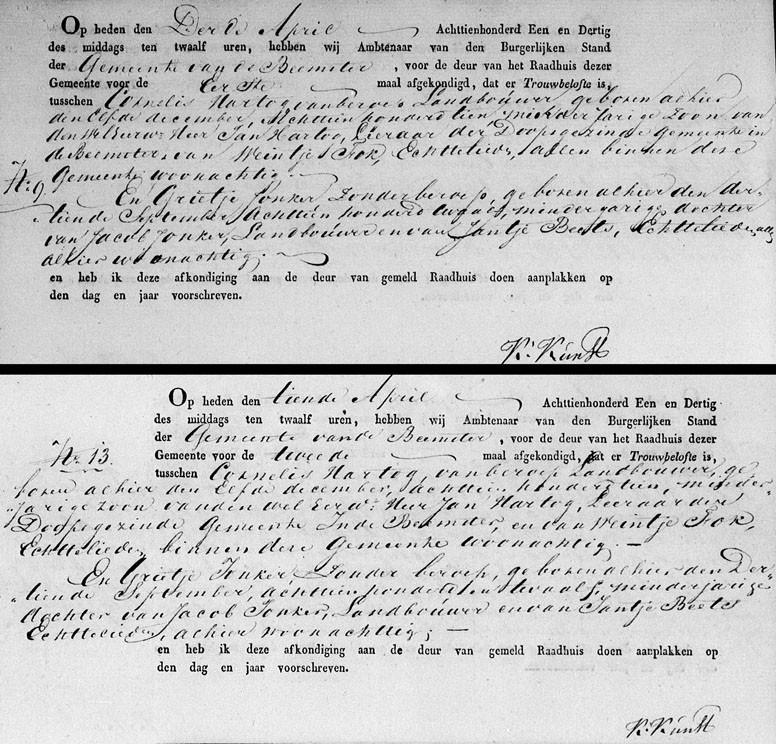 Op heden den Derde April Achttienhonderd Een en Dertig
des middags ten twaalf uren, hebben wij Ambtenaar van den Burgerlijken Stand
der Gemeente van de Beemster, voor de deur van het Raadhuis dezer
Gemeente voor de Eerste maal afgekondigd, dat er Trouwbelofte is,
tusschen Cornelis Hartog van beroep Landbouwer, geboren alhier
den Elfde december, Achttien honderd tien, minderjarige zoon van
den WelEerw: Heer Jan Hartog, Leeraar der Doopsgezinde Gemeente in
de Beemster, en van Weintje Fok, Echttelieden, alle binnen dese
Gemeente woonachtig.
No 9.
En Grietje Jonker Zonder beroep, geboren alhier den der-
tiende September, Achttien honderd twaalf, minderjarige dochter
van Jacob Jonker, Landbouwer en van Jantje Beets, Echttelieden,
alhier woonachtig.
en heb ik deze afkondiging aan de deur van gemeld Raadhuis doen aanplakken op
den dag en jaar voorschreven.
K: Kunst
Op heden den tiende April Achttienhonderd Een en Dertig
des middags ten twaalf uren, hebben wij Ambtenaar van den Burgerlijken Stand
der Gemeente van de Beemster, voor de deur van het Raadhuis dezer
No 13.
Gemeente voor de tweede maal afgekondigd, dat er Trouwbelofte is,
tusschen Cornelis Hartog, van beroep Landbouwer, ge
boren alhier den Elfde december, achttien honderd tien, minder-
jarige zoon van den wel Eerw: Heer Jan Hartog, Leeraar der
Doopsgezinde Gemeente In de Beemster, en van Weintje Fok,
Echttelieden, binnen dese Gemeente woonachtig. —
En Grietje Jonker, Zonder beroep, geboren alhier den Der-
tiende September, achttien honderd en twaalf, minderjarige
dochter van Jacob Jonker, Landbouwer en van Jantje Beets
Echttelieden, alhier woonachttig; —
en heb ik deze afkondiging aan de deur van gemeld Raadhuis doen aanplakken op
den dag en jaar voorschreven.
K: Kunst